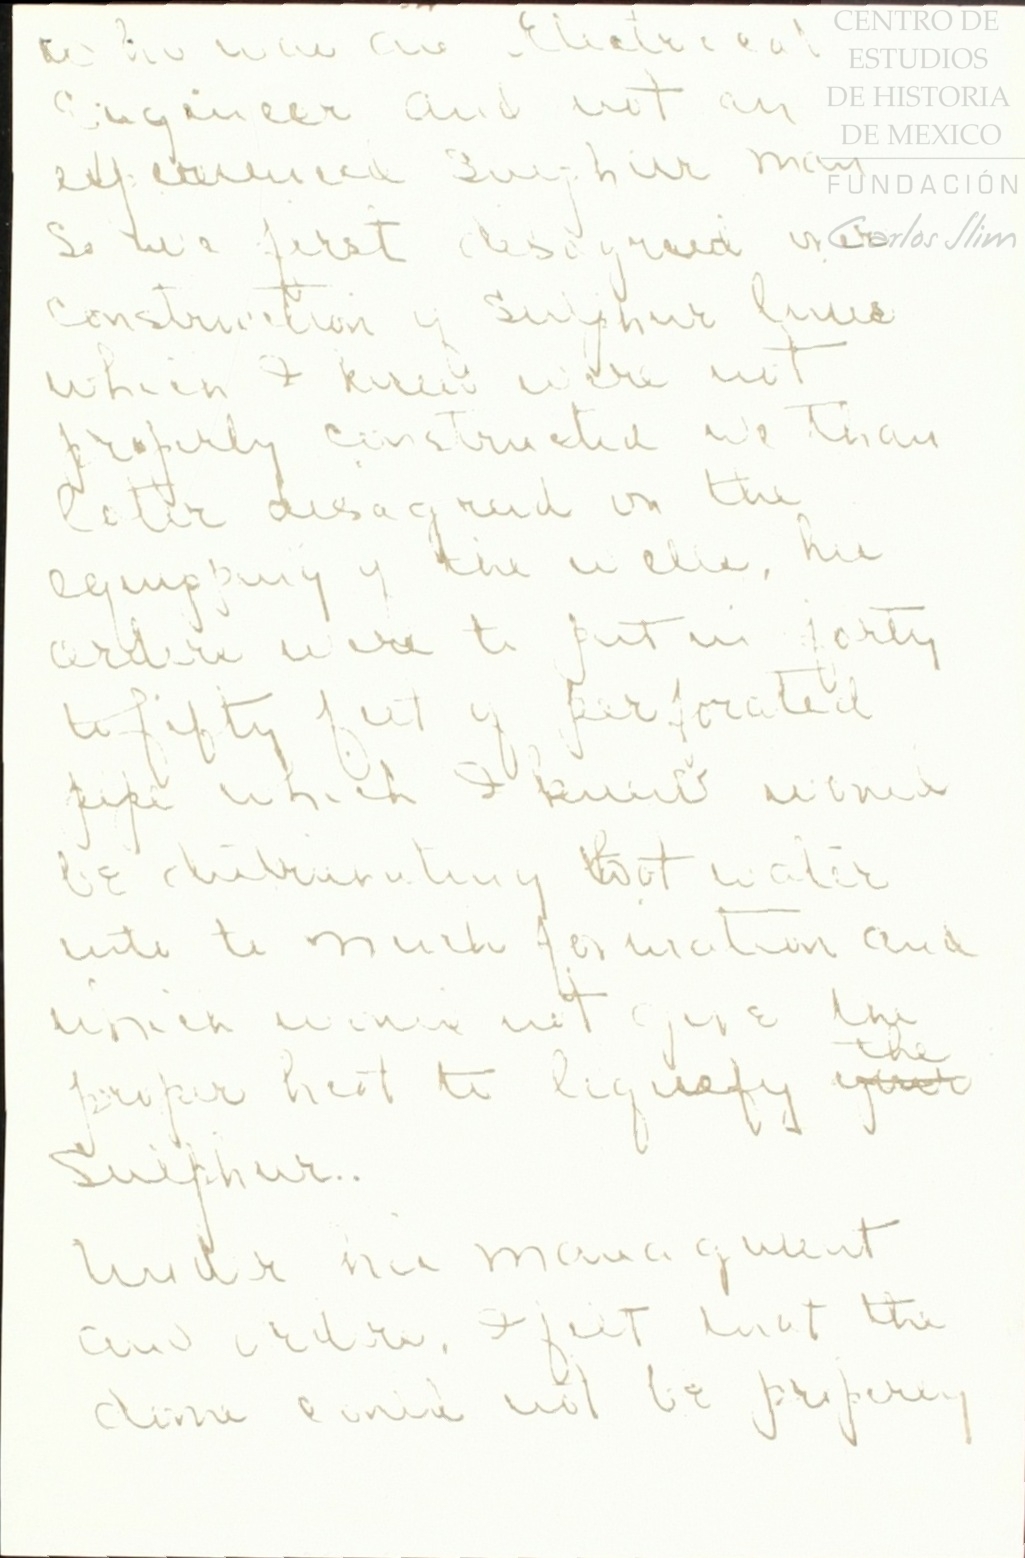 CENTRO DE
ESTUDIOS
DE HISTORIA
DE MEXICO
FUNDACIÓN
Carlos Slim
who was an Electrical
Engineer and not an
experienced Sulphur man
So we first disagreed over
construction of Sulphur lines
which I knew were not
properly constructed we than
later disagreed on the
equipping of the wells, his
orders were to put in forty
to fifty feet of perforated
pipe which I knew would
be distributing hot water
into to much formation and
which would not give the
proper heat to liquefy the
Sulphur..
Under his managment
and orders, I felt that the
dome could not be properly